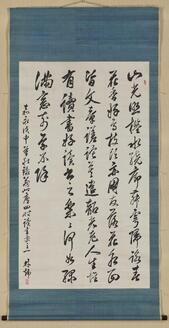 山光照檻水繞廊舞雩歸詠春
風香好鳥枝頭亦朋友落花水面
皆文章蹉跎莫遣韶光老人生惟
有讀書好讀書之樂樂何如綠
滿窓前草不除